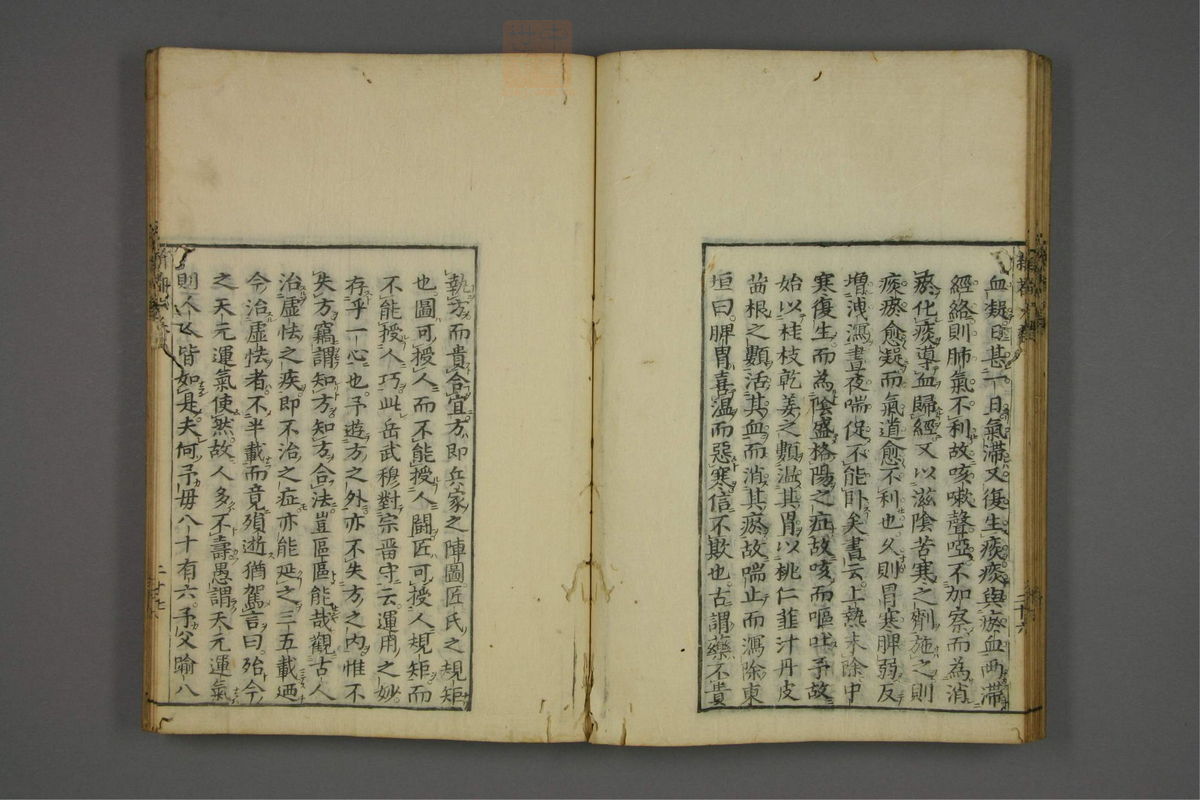 血凝日甚一日氣滯又復生痰痰與瘀血兩滯
經絡則肺氣不利故咳嗽聲啞不加察而為消
瘀化痰導血歸經又以滋陰苦寒之劑施之則
瘀愈凝而氣道愈不利也久則胃寒脾弱反
増溏瀉晝夜喘促不能卧矣書云上熱未除中
寒復生而為陰盛格陽之症故咳而嘔吐予故
始以桂枝乾姜之類溫其胃以桃仁韮汁丹皮
茜根之類活其血而消其瘀故喘止而瀉除東
垣曰脾胃喜温而惡寒信不欺也古謂藥不貴
二十六
執方而貴合宜方即兵家之陣圖匠氏之規矩
也圖可授人而不能授人闘匠可授人規矩而
不能授人巧此岳武穆對宗晋守云運用之妙
存乎一心也予遊方之外亦不失方之内惟不
失方竊謂知方知方合法豈區區能哉觀古人
治虚怯之疾即不治之症亦能延之三五載廼
今治虚怯者不半載而竟殞逝猶駕言曰殆今
之天元運氣使然故人多不壽愚謂天元運氣
則人人皆如是夫何予毋八十有六予父踰八
二十七